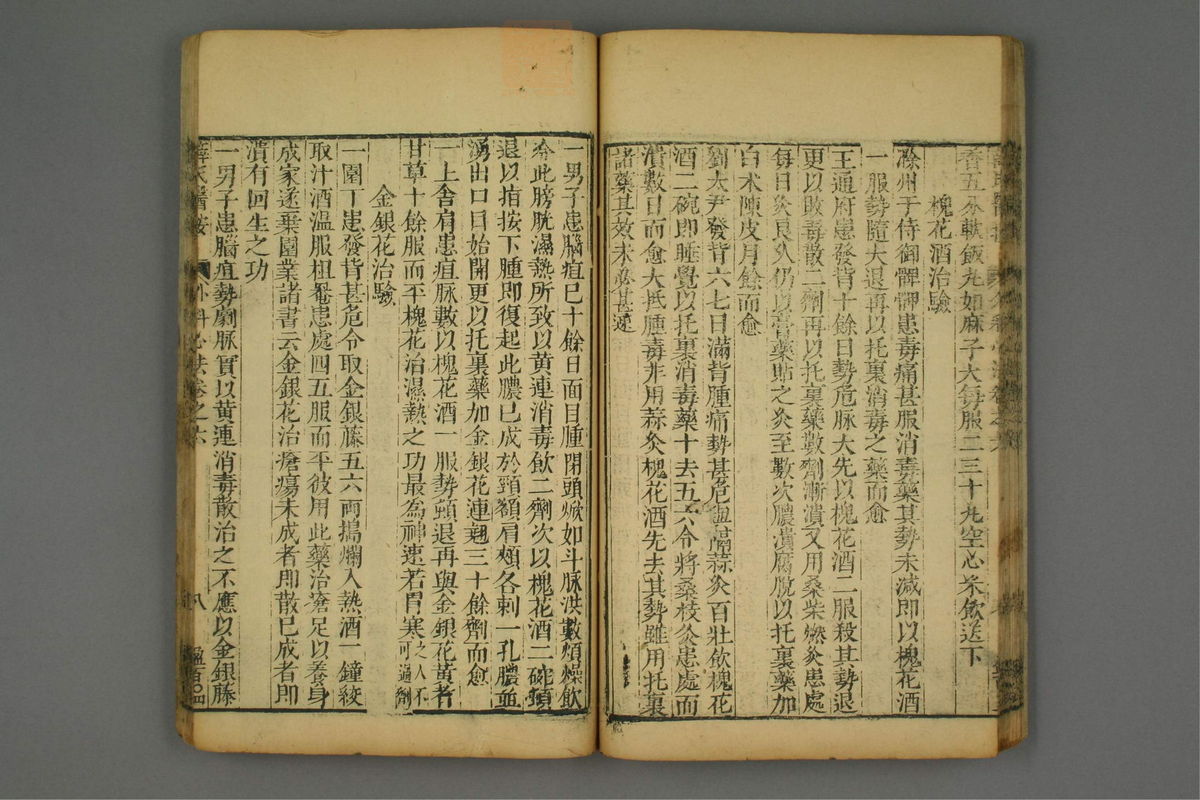 香五分軟飯丸如麻子大每服二三十丸空心米飲送下
槐花酒治驗
滁州于侍御髀胛患毒痛甚服消毒藥其勢未減即以槐花酒
一服勢隨大退再以托裏消毒之藥而愈
王通府患發背十餘日勢危脉大先以槐花酒二服殺其勢退
更以敗毒散二劑再以托裏藥數劑漸潰又用桑柴燃灸患處
每日灸良久仍以膏藥貼之灸至數次膿潰腐脫以托裏藥加
白术陳皮月餘而愈
劉大尹發背六七日滿背腫痛勢甚危與隔蒜灸百壯飲槐花
酒二碗即睡覺以托裏消毒藥十去五六令將桑枝灸患處而
潰數日而愈大抵腫毒非用蒜灸槐花酒先去其勢雖用托裏
諸藥其效未必甚速
一男子患腦疽已十餘日面目腫閉頭焮如斗脉洪數煩燥飲
冷此膀胱濕熱所致以黄連消毒飲二劑次以槐花酒二碗頓
退以指按下腫即復起此膿已成於頸額肩頰各刺一孔膿並
湧出口目始開更以托裏藥加金銀花連翹三十餘劑而愈
一上舍肩患疽脉數以槐花酒一服勢頓退再與金銀花黄芪
甘草十餘服而平槐花治濕熱之功最為神速若胃寒之人不可過劑
金銀花治驗
一園丁患發背甚危令取金銀藤五六兩搗爛入熱酒一鐘絞
取汁酒温服柤罨患處四五服而平彼用此藥治瘡足以養身
成家遂棄園業諸書云金銀花治瘡瘍未成者即散已成者即
潰有回生之功
一男子患腦疽勢劇脉實以黄連消毒散治之不應以金銀藤
薛氏醫按 外科心法卷之六 八